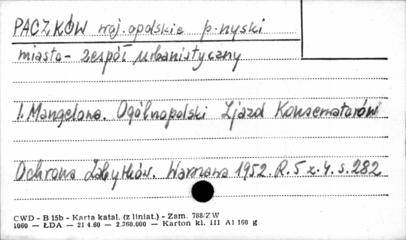 PACZKÓW woj. opolskie p-nyski
miasto - zespół urbanistyczny
1. Mangelowa. Ogólnopolski Zjazd Konserwatorów
Ochrona Zabytków. Warszawa 1952. R. 5 z. 4. s. 282
CWD - B 15b - Karta katal. (z liniat.) - Zam. 788/ZW
1060 — ŁDA — 21 4.60 — 2.360.000 — Karton kl. III A1 160 g